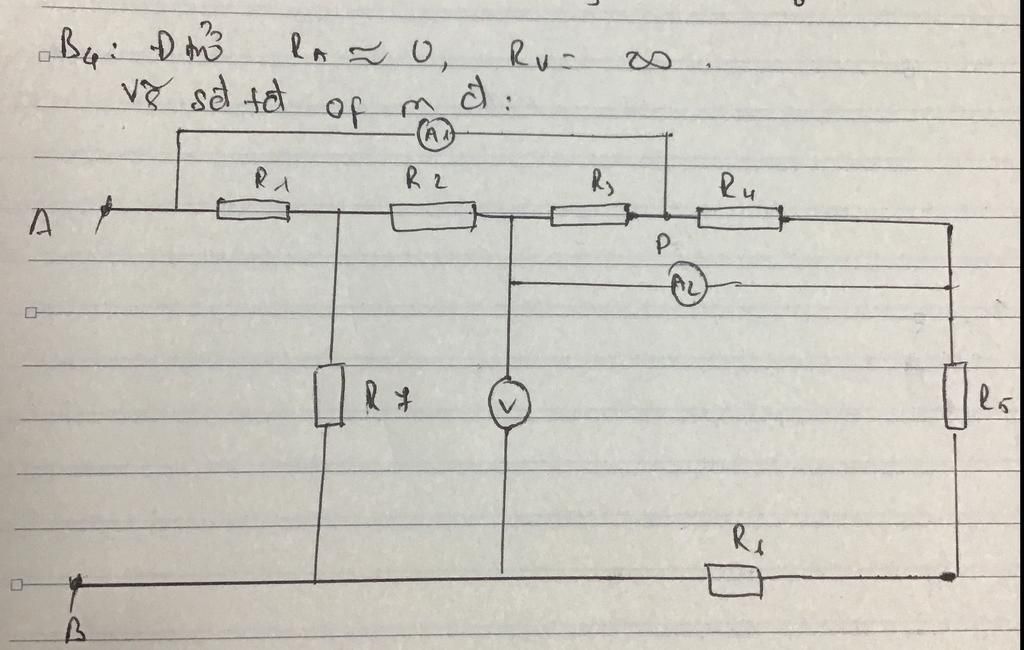 B4: Dmở RA ≈ 0, RV = ∞.
Vẽ sđ tđ of m đ:
A1
R1 R2 R3 R4
A
P
A2
R7 V R5
R6
B